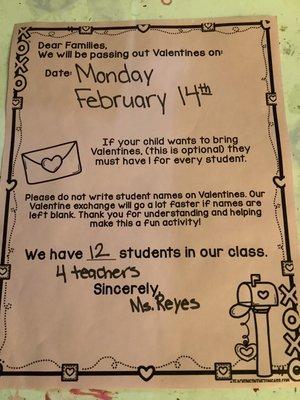 Dear Families,
We will be passing out Valentines on:
Date: Monday
February 14th
If your child wants to bring
Valentines, (this is optional) they
must have 1 for every student.
Please do not write student names on Valentines. Our
Valentine exchange will go a lot faster if names are
left blank. Thank you for understanding and helping
make this a fun activity!
We have 12 students in our class.
4 teachers
Sincerely,
Ms. Reyes